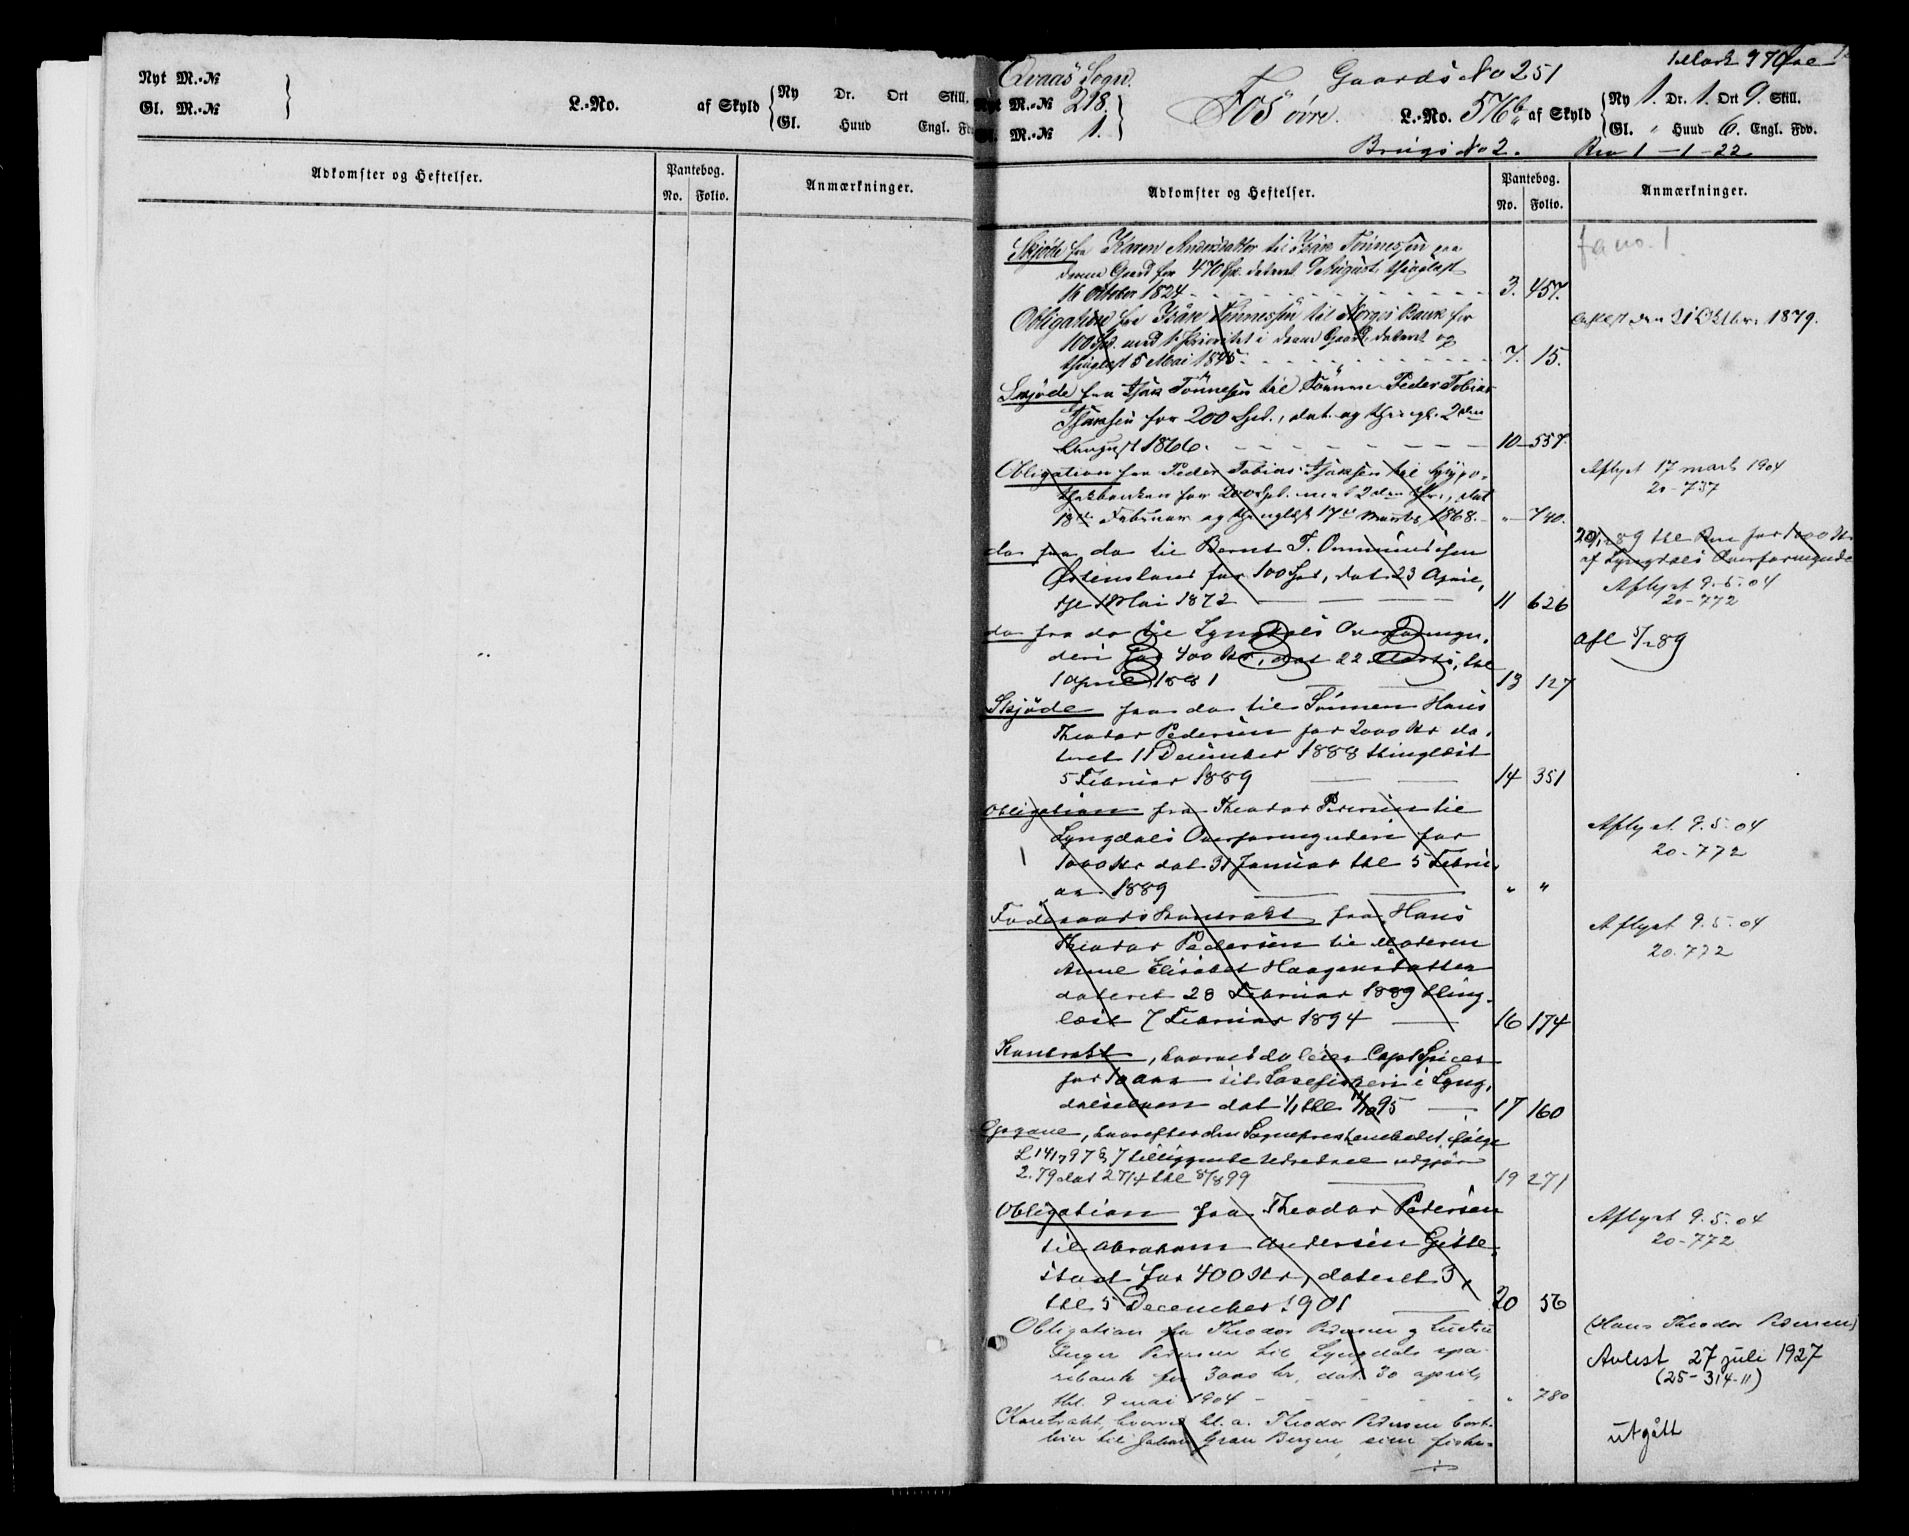 Nyt M.-№
Gl. M.-№
L.-No. af Skyld
Ny Dr. Ort Skill.
Gl. Huud Engl.
Adkomster og Heftelser.
Pantebog.
No. Folio.
Anmærkninger.
Qvaas Sogn.
Gaards No 251
1 Mark 97 Øre
Nyt M.-№ 218.
Gl. M.-№ 1.
Fos øvre.
L.-No. 576b af Skyld
Ny 1. Dr. 1. Ort 9. Skill.
Gl. " Huud 6. Engl. Fdv.
Brugs No 2.
Rev 1-1-22
Adkomster og Heftelser.
Pantebog.
No. Folio.
Anmærkninger.
Skjöde fra Karen Andersdatter til Isak Tönnessen paa
denne Gaard for 470 Spd. dateret August thinglæst
16 October 1824 - - - 3. 457.
Obligation fra Isak Tönnessen til Norges Bank for
100 Spd. med 1 Prioritet i denne Gaard, dateret og
thinglæst 5 Mai 1845. - - - 7. 15.
den 21 Oktbr. 1879.
Skjöde fra Isak Tönnesen til Sönnen Peder Tobias
Isaksen for 200 Spd., dat. og thingl. 2den
August 1866. - - - 10 - 557.
Obligation fra Peder Tobias Isaksen til Hypo-
thekbanken for 200 Spd. med 2den Pr., dat
18de Februar og thinglæst 17de Marts 1868. " - 740.
Aflyst 17 marts 1904
20-737
do fra do til Bernt T. Ommundsen
Östensland for 100 Spd, dat 23 April,
thl 1 Mai 1872 11 626
89 thl for 1000 Kr
af Lyngdals Overformynderi
Aflyst 9.5.04
20-772
do fra do til Lyngdals Overformyn-
deri for 400 Kr, dat 22 Marts, thl
1 April 1881 13 127
Afl 5/2 89
Skjöde fra do til Sönnen Hans
Theodor Pedersen for 2000 Kr da-
teret 11 December 1888 thinglæst
5 Februar 1889 14 351
Obligation fra Theodor Pedersen til
Lyngdals Overformynderi for
1000 Kr dat 31 Januar thl 5 Febru-
ar 1889 " "
Aflyst 9.5.04
20-772
Föderaadskontrakt fra Hans
Theodor Pedersen til Moderen
Anne Elisabet Haagensdatter
dateret 28 Februar 1889 thing-
læst 7 Februar 1894 16 174
Aflyst 9.5.04
20.772
Kontrakt, hvorved do leier Capt Spicer
for 10 aar sit Laxefiskeri i Lyng-
dalselven dat 1/1 thl 95 17 160
Opgave, hvorefter den Sognepresteembedet ifölge
L 14/7 97 § 7 tilliggende Udredsel udgjör
2.79 dat 27/4 thl 8/8 99 19 271
Obligation fra Theodor Pedersen
til Abraham Andersen Gitle-
stad for 400 Kr, dateret 3,
thl 5 December 1901 20 56
Aflyst 9.5.04
20-772
Obligation fra Theodor Pedersen og hustru
Inger Pedersen til Lyngdals spa-
rebank for 3000 kr, dat. 30 april,
thl. 9 mai 1904 - - - " 780
(Hans Theodor Pedersen)
Avlest 27 juli 1927
(25-314-11)
Kontrakt, hvorved bl. a. Theodor Pedersen bort-
leier til Johan Gran Bergen, sine fiske-
utgått